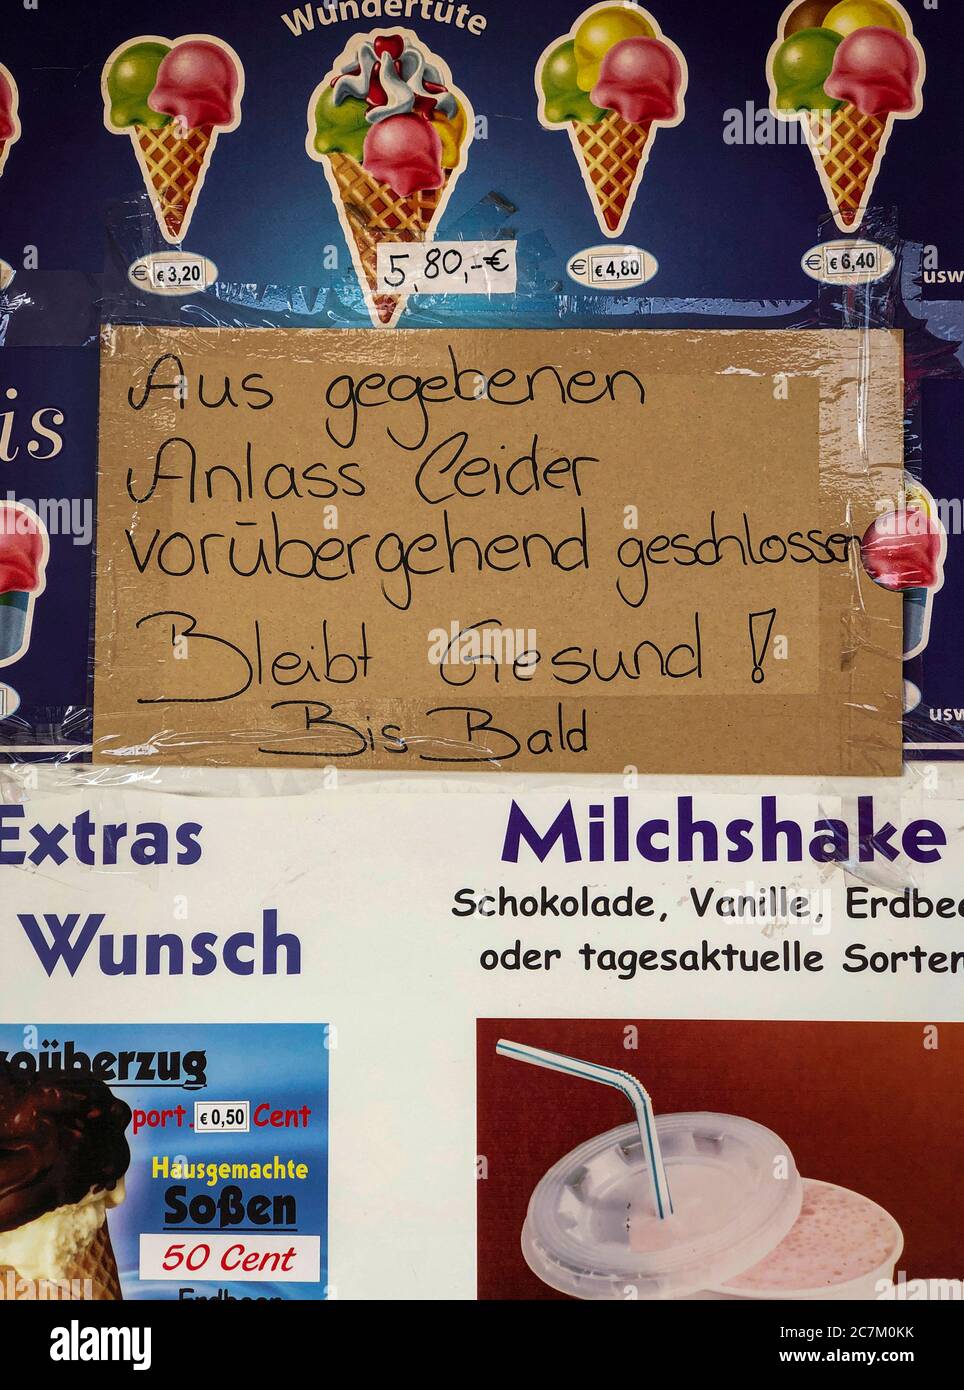 Wundertüte
€ € 3,20
5,80,-€
€ € 4,80
€ € 6,40
usw
is
Aus gegebenen
Anlass Leider
vorübergehend geschlossen
Bleibt Gesund !
Bis Bald
usw
Extras
Wunsch
Milchshake
Schokolade, Vanille, Erdbee
oder tagesaktuelle Sorten
oüberzug
port. € 0,50 Cent
Hausgemachte
Soßen
50 Cent
Erdbeer
alamy
Image ID: 2C7M0KK
www.alamy.com